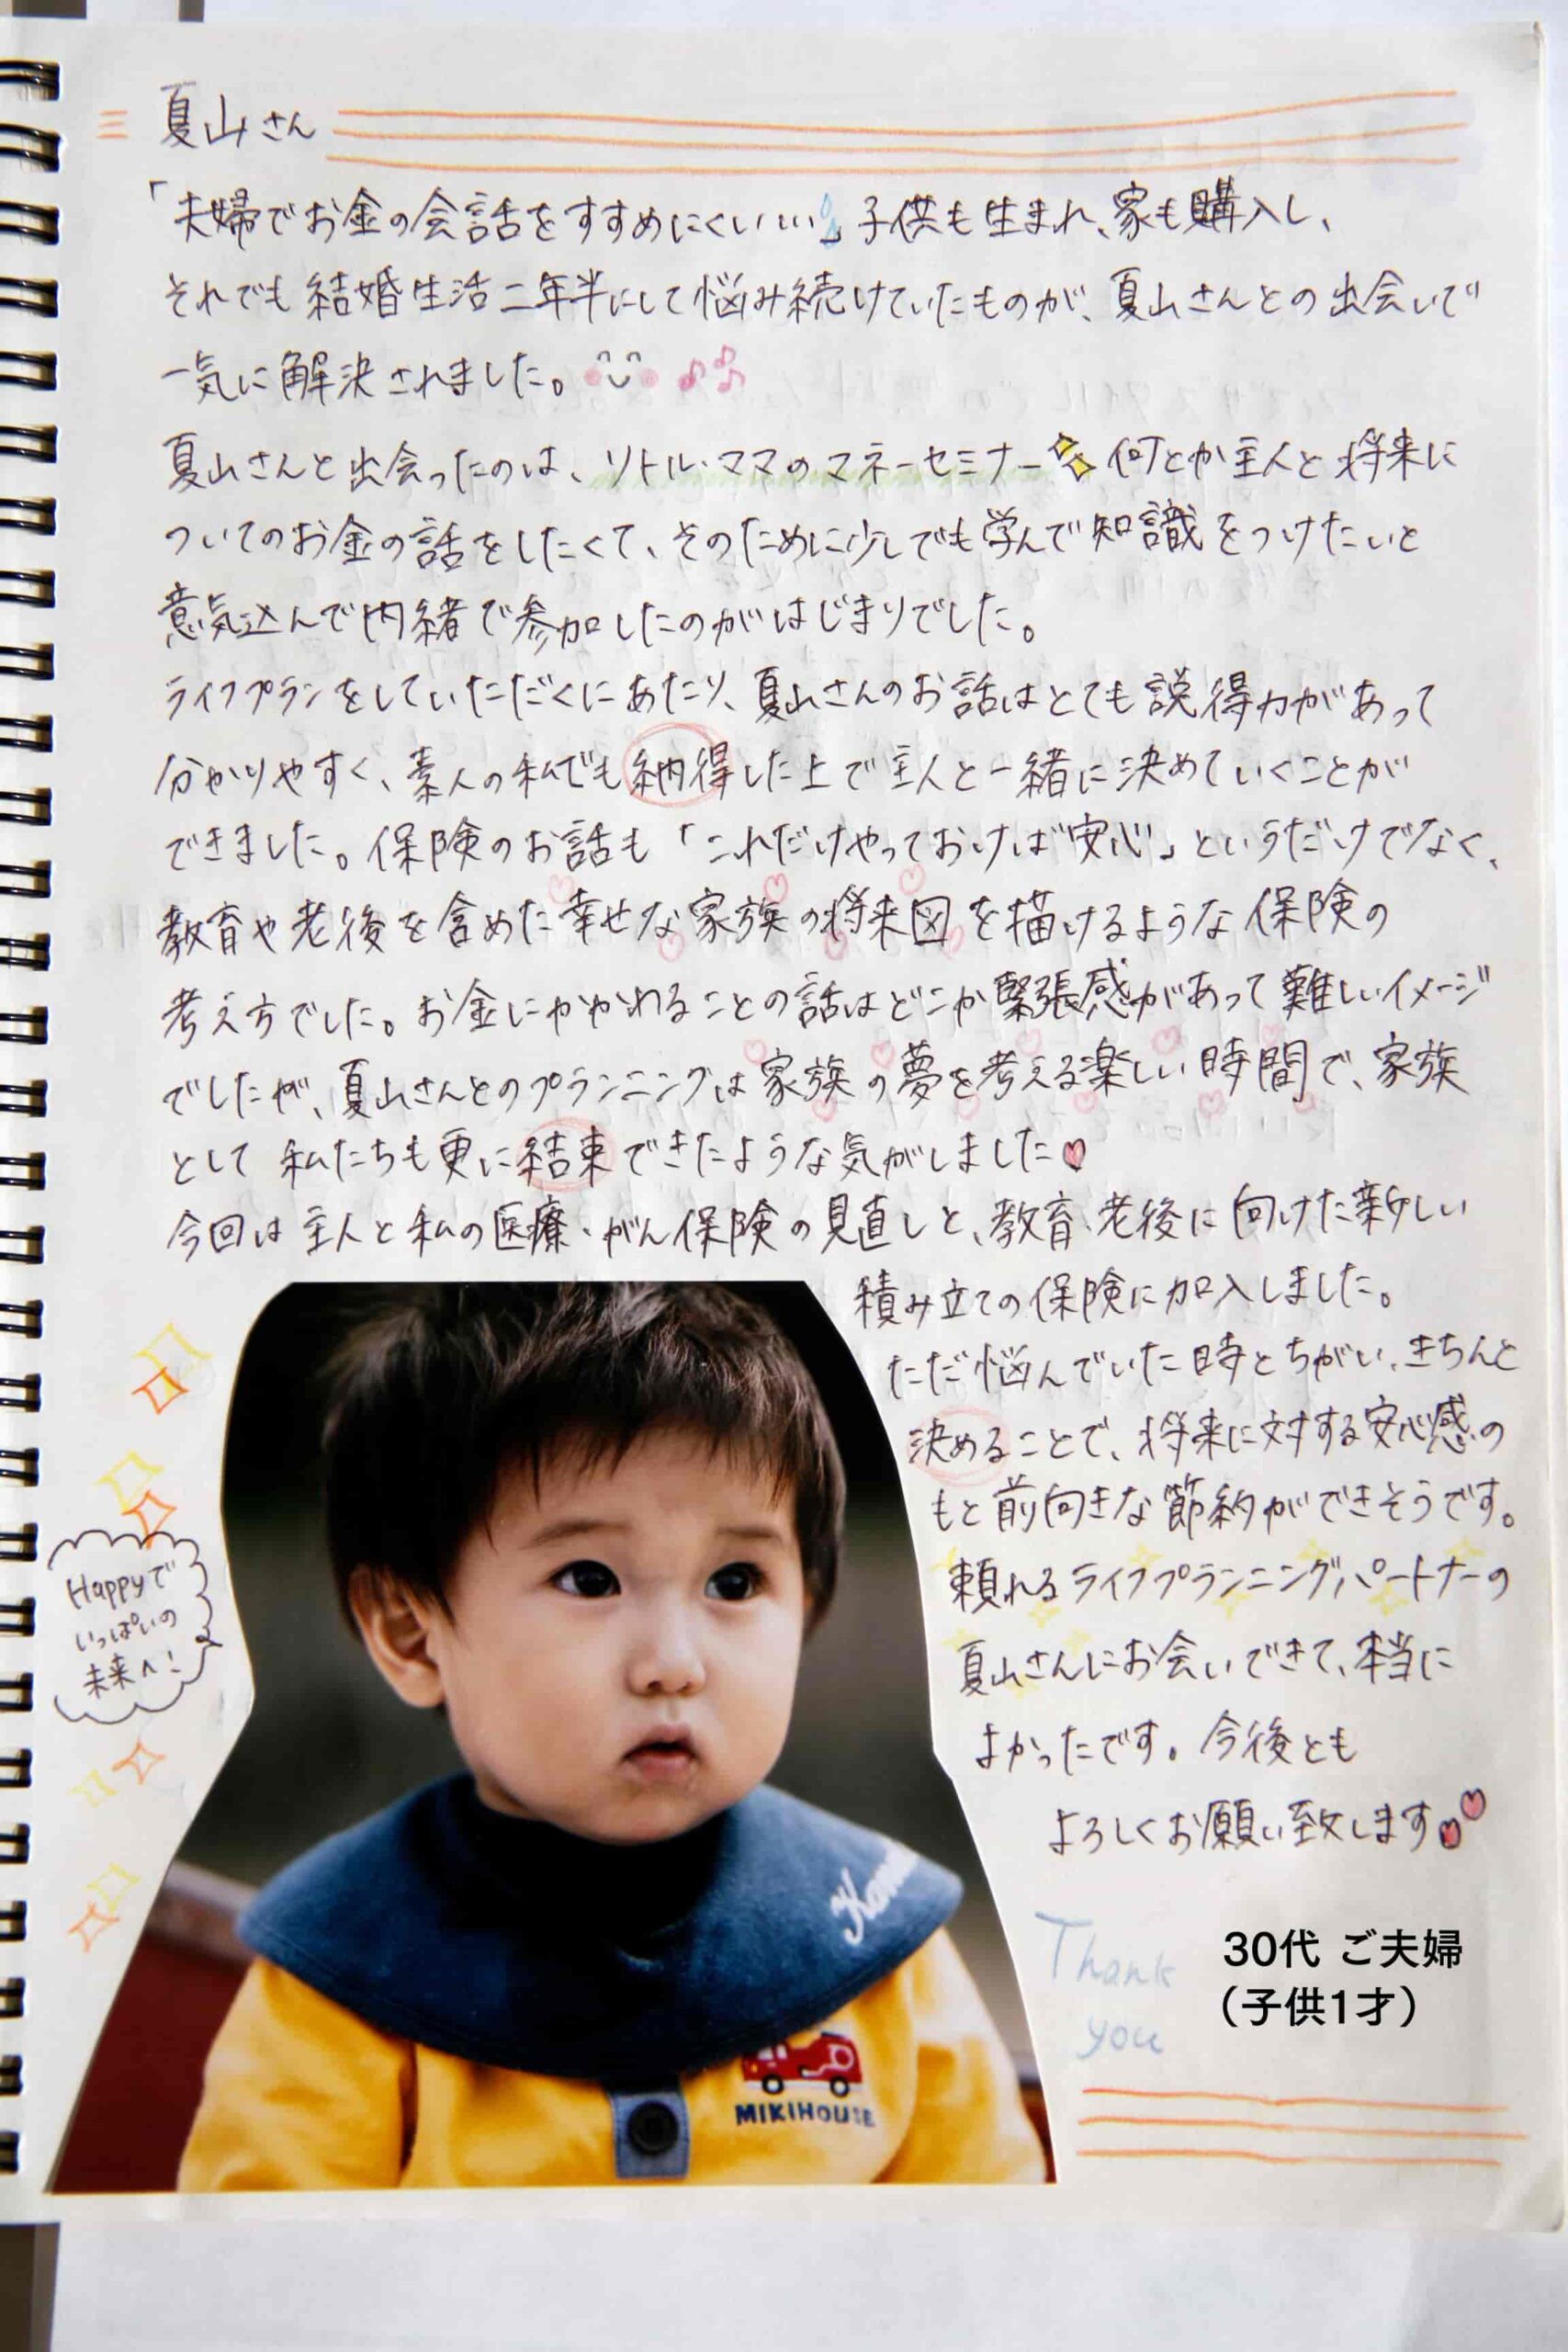 夏山さん
「夫婦でお金の会話をすすめにくい…」子供も生まれ、家も購入し、
それでも結婚生活二年半にして悩み続けていたものが、夏山さんとの出会いで
一気に解決されました。
夏山さんと出会ったのは、リトル・ママのマネーセミナー 何とか主人と将来に
ついてのお金の話をしたくて、そのために少しでも学んで知識をつけたいと
意気込んで内緒で参加したのがはじまりでした。
ライフプランをしていただくにあたり、夏山さんのお話はとても説得力があって
分かりやすく、素人の私でも納得した上で主人と一緒に決めていくことが
できました。保険のお話も「これだけやっておけば安心」というだけでなく、
教育や老後を含めた幸せな家族の将来図を描けるような保険の
考え方でした。お金にかかわることの話はどこか緊張感があって難しいイメージ
でしたが、夏山さんとのプランニングは家族の夢を考える楽しい時間で、家族
として私たちも更に結束できたような気がしました
今回は主人と私の医療・がん保険の見直しと、教育、老後に向けた新しい
積み立ての保険に加入しました。
ただ悩んでいた時とちがい、きちんと
決めることで、将来に対する安心感の
もと前向きな節約ができそうです。
頼れるライフプランニングパートナーの
夏山さんにお会いできて、本当に
よかったです。今後とも
よろしくお願い致します
Happyで
いっぱいの
未来へ!
MIKIHOUSE
Thank
you
30代 ご夫婦
(子供1才)